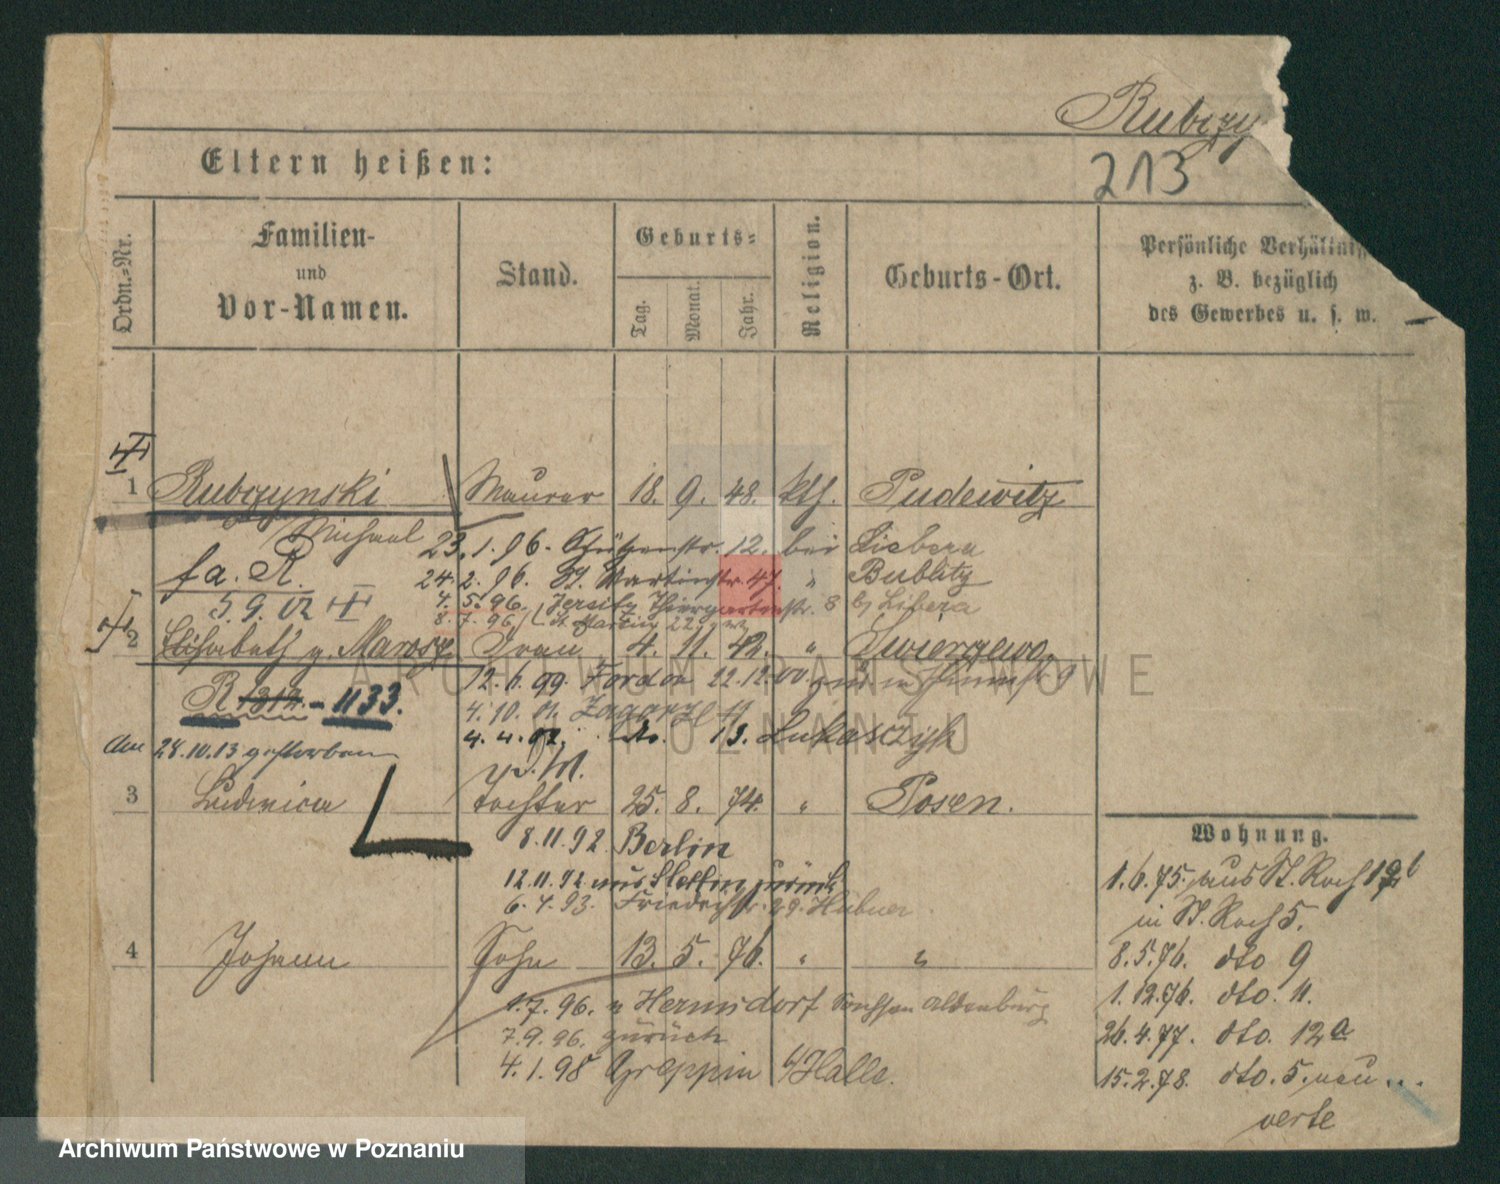 Rubczy
213
Eltern heißen:
Ordn.-Nr.
Familien-
und
Vor-Namen.
Stand.
Geburts-
Tag.
Monat.
Jahr.
Religion.
Geburts-Ort.
Persönliche Verhältnis
z. B. bezüglich
des Gewerbes u. s. w.
1 Rubczynski Maurer 18. 9. 48. kth. Pudewitz
Michael 23. 1. 96. Schützenstr. 12. bei Liebera
fa. R. 24. 2. 96. St. Martinstr. 47. " Bublitz
5.9.02 4. 5. 96. Jersitz Thiergartenstr. 8 b/ Libera
8. 7. 96. St. Martin 22
2 Elisabeth g. Marosz Frau 4. 11. 42. "
R 1314. - 1133. 12. 6. 99. Fordon 22.12.00.
4. 10. 01. Zagorze 11
4. 4. 02. dto. 13. Lukaszyk
am 28.10.13 gestorben
3 Ludwica Tochter 25. 8. 74. " Posen.
8. 11. 92. Berlin
12. 11. 92 aus Stettin zurück
6. 4. 93. Friedrichstr. 29. Hübner
4 Johann Sohn 13. 5. 76. " "
1. 7. 96. n Hermsdorf Sachsen Altenburg
7. 9. 96. zurück
4. 1. 98 Greppin b/ Halle.
Wohnung.
1. 6. 75. aus St. Roch
in St. Roch 5.
8. 5. 76. dto 9
1. 12. 76. dto. 11.
26. 4. 77. dto. 12a
15. 2. 78. dto. 5. neu...
verte
ARCHIWUM PAŃSTWOWE
W POZNANIU
Archiwum Państwowe w Poznaniu